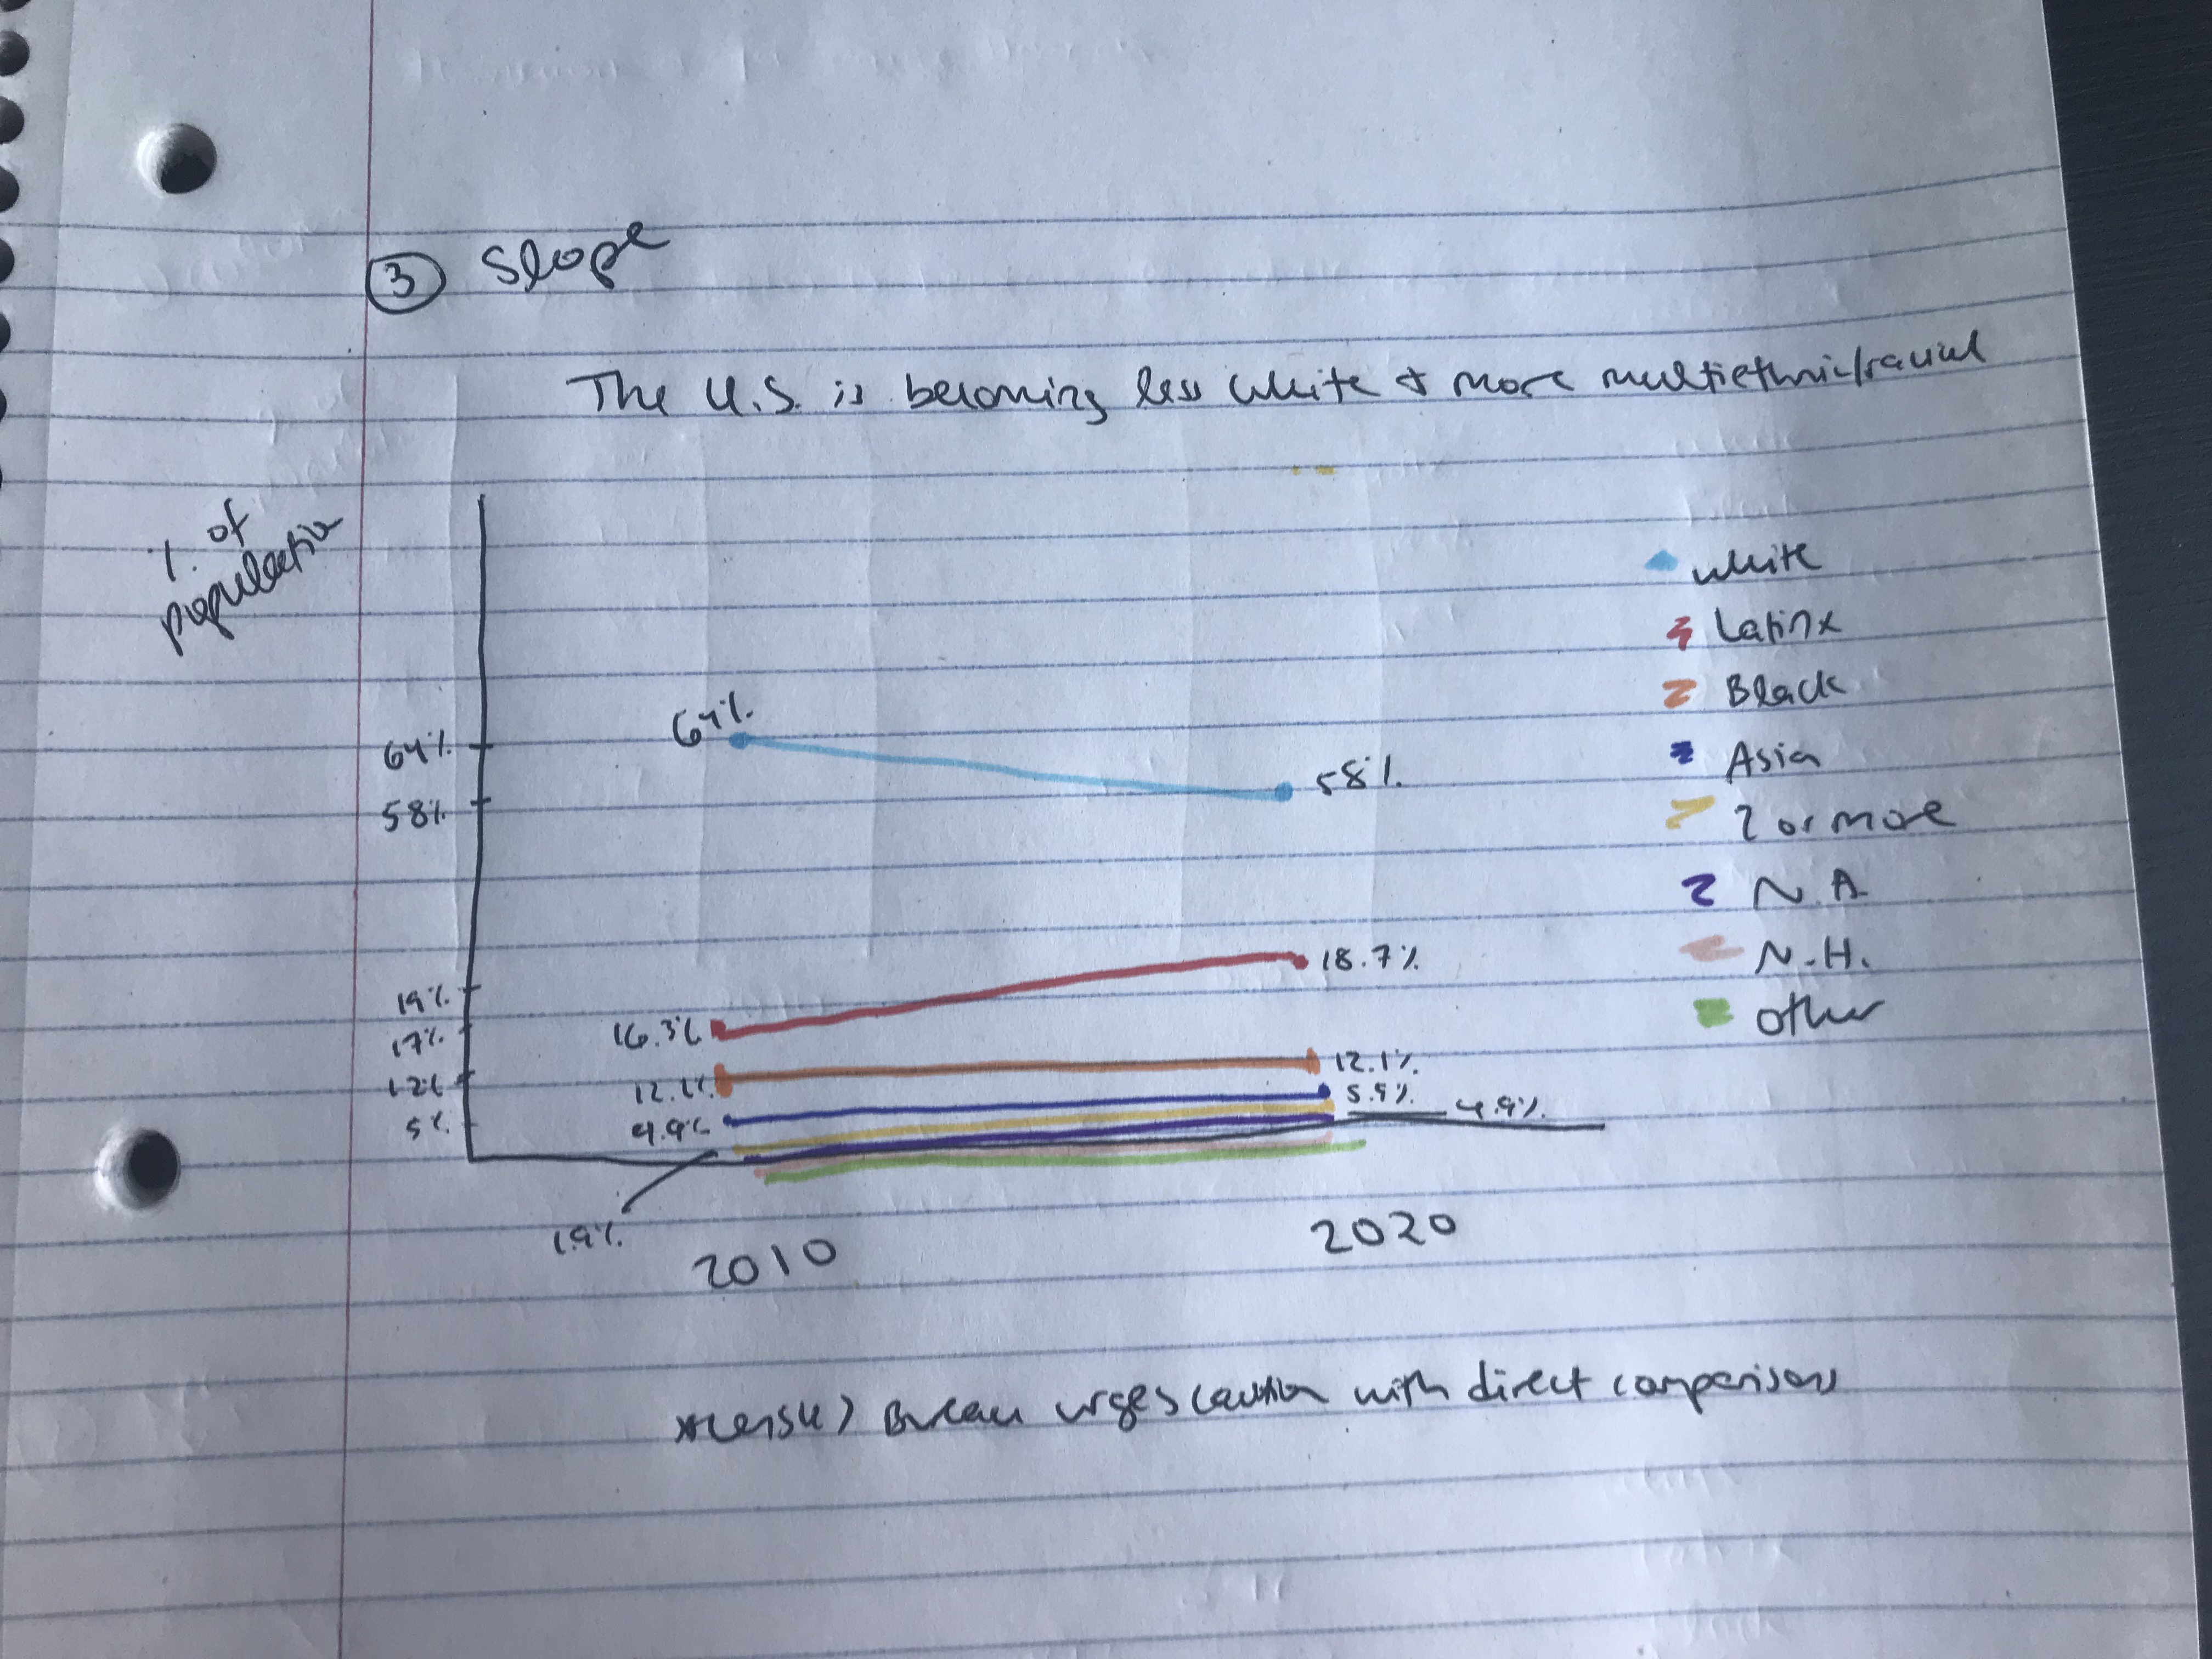 3 Slope
The U.S. is becoming less white & more multiethnic/racial
% of
population
64%
58%
19%
17%
12%
5%
64%
58%
16.3%
18.7%
12.1%
4.9%
5.9%
4.9%
1.9%
2010
2020
White
Latinx
Black
Asian
2 or more
N.A.
N.H.
Other
*Census Bureau urges caution with direct comparisons